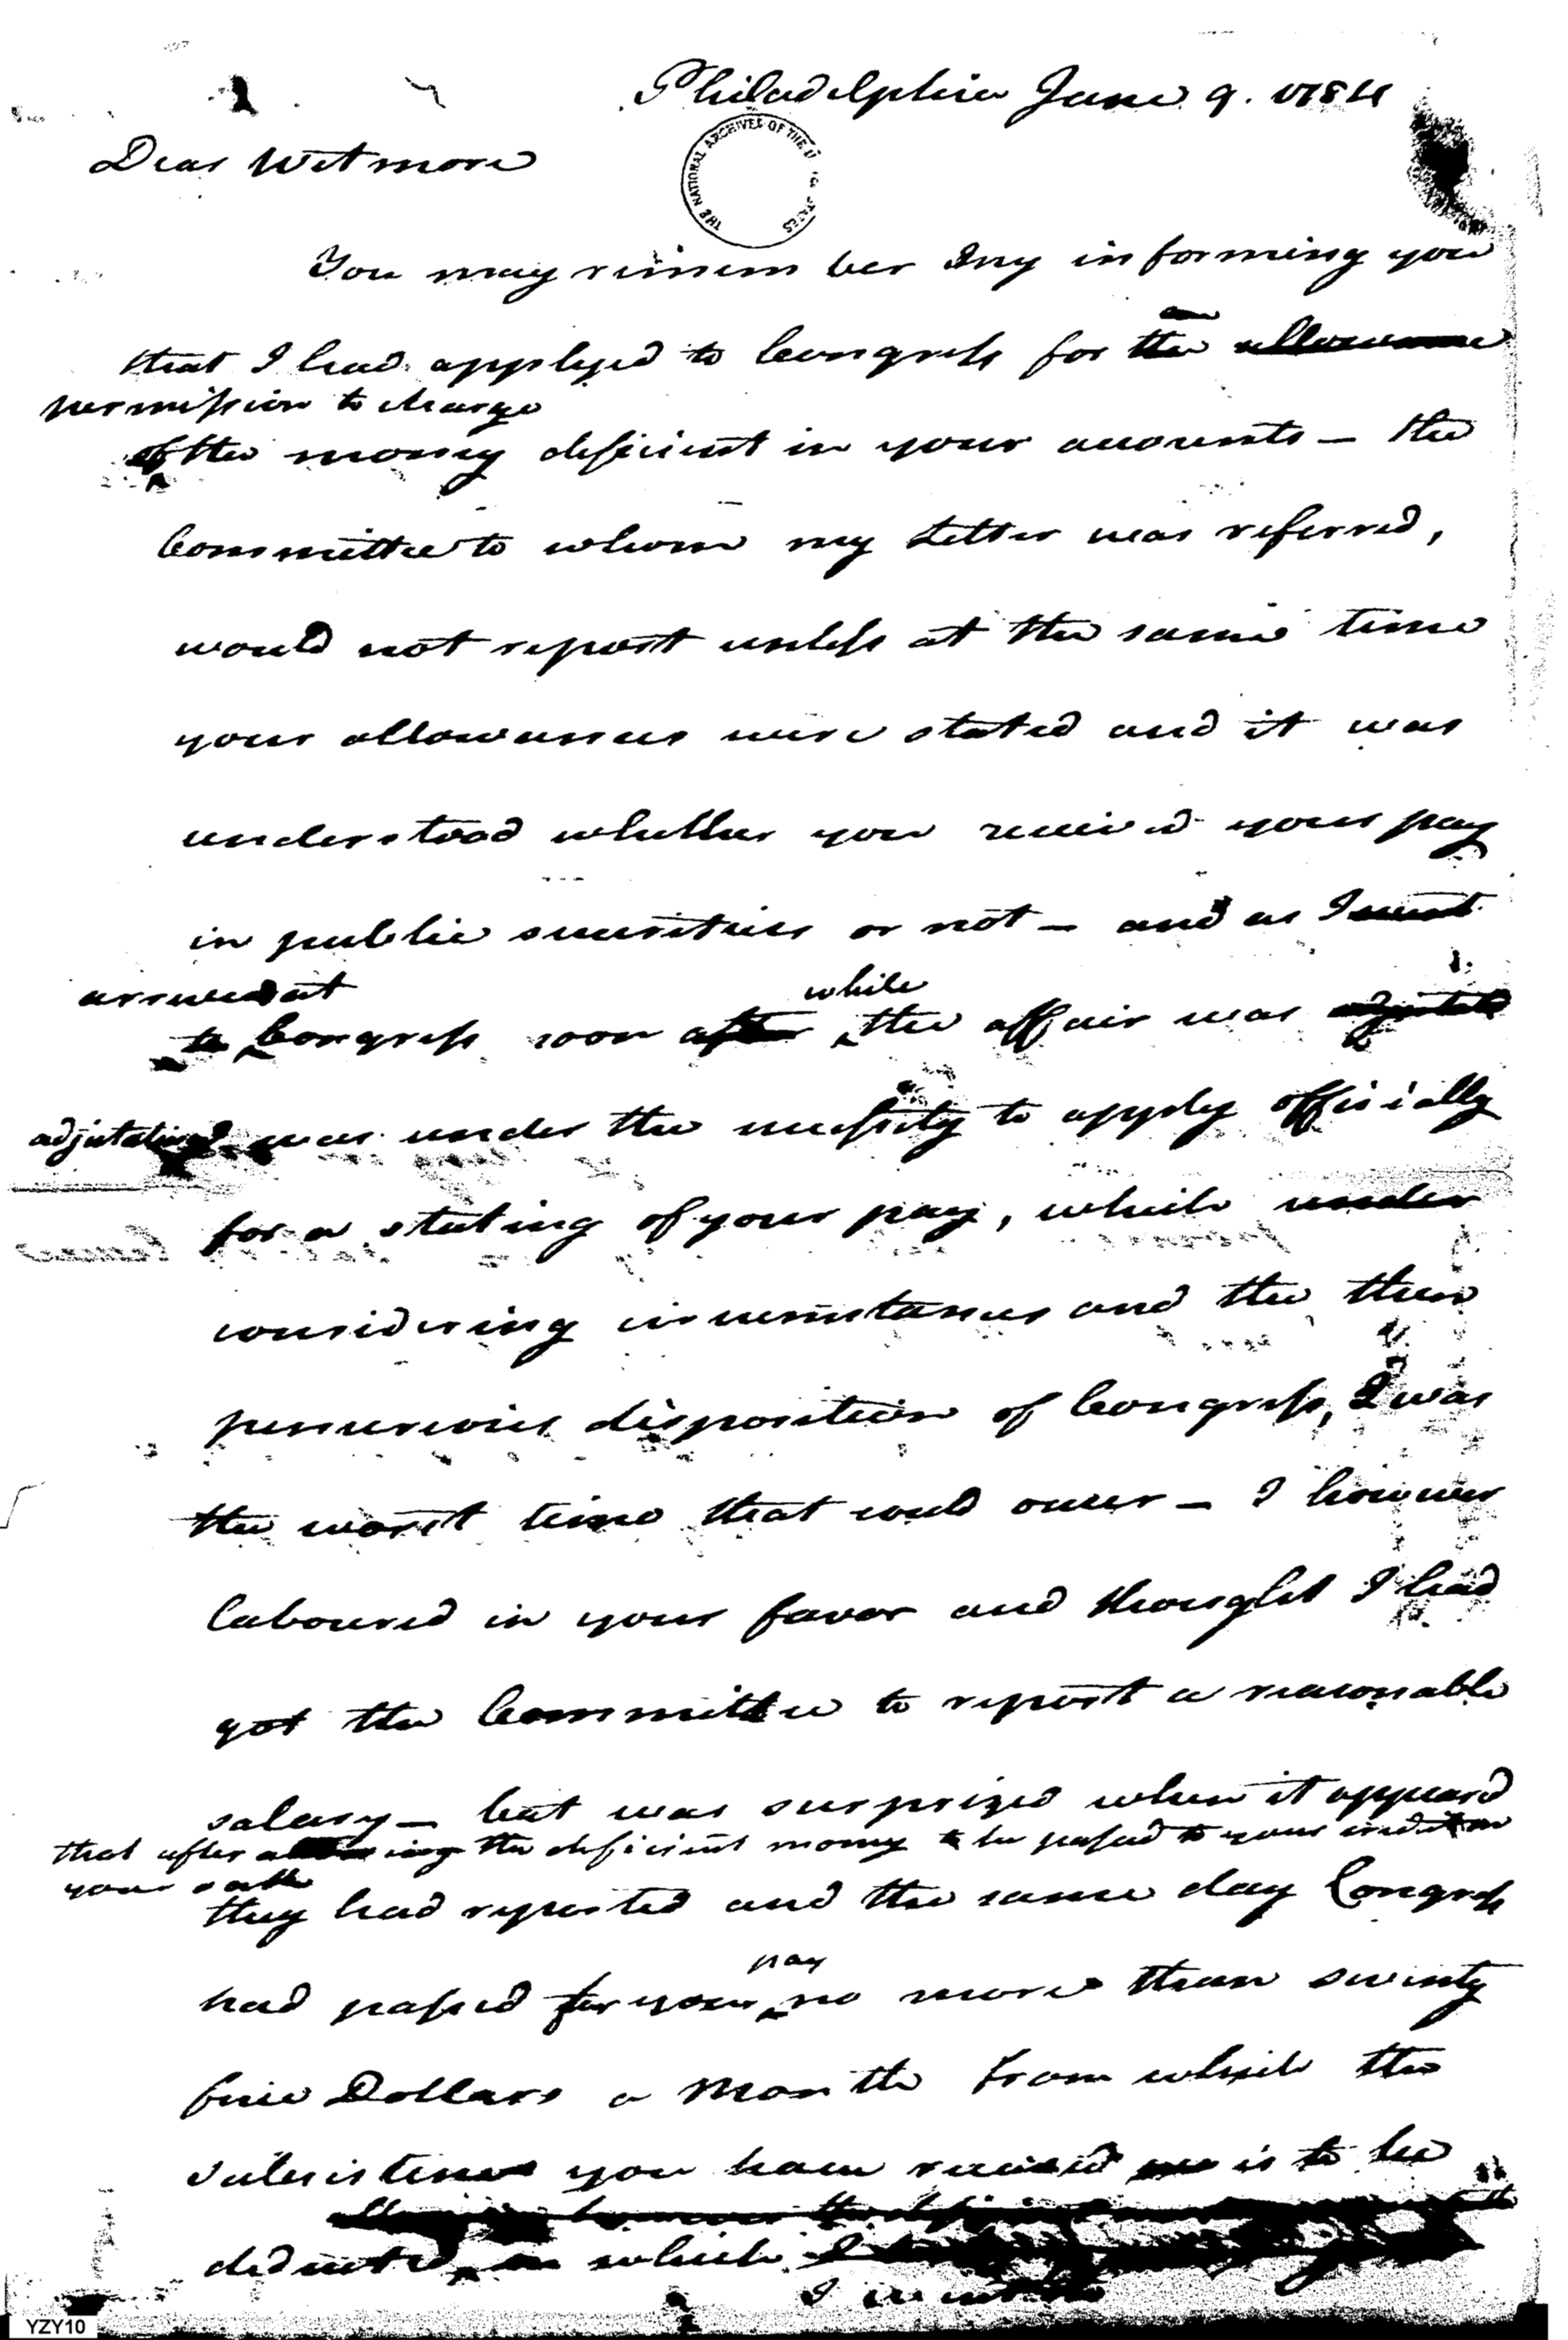 Philadelphia June 9. 1784
THE NATIONAL ARCHIVES OF THE UNITED STATES
Dear Wetmore
You may remember my informing you
that I had applyed to Congress for the allowance
permission to charge
of the money deficient in your accounts — the
Committee to whom my Letter was referred,
would not report unless at the same time
your allowances were stated and it was
understood whether you received your pay
in public securities or not — and as I went
arrived at while
to Congress soon after the affair was adjusted
adjutating was under the necessity to apply officially
for a stating of your pay, which under
considering circumstances and the then
penurious disposition of Congress, I was
the worst time that could occur — I however
laboured in your favor and thought I had
got the Committee to report a reasonable
salary — but was surprized when it appeard
that after allowing the deficient money to be passed to your credit on
your oath
they had reported and the same day Congress
pay
had passed for your no more than seventy
five Dollars a Month from which the
subsistence you have received is to be
deducted, which I
I
YZY10